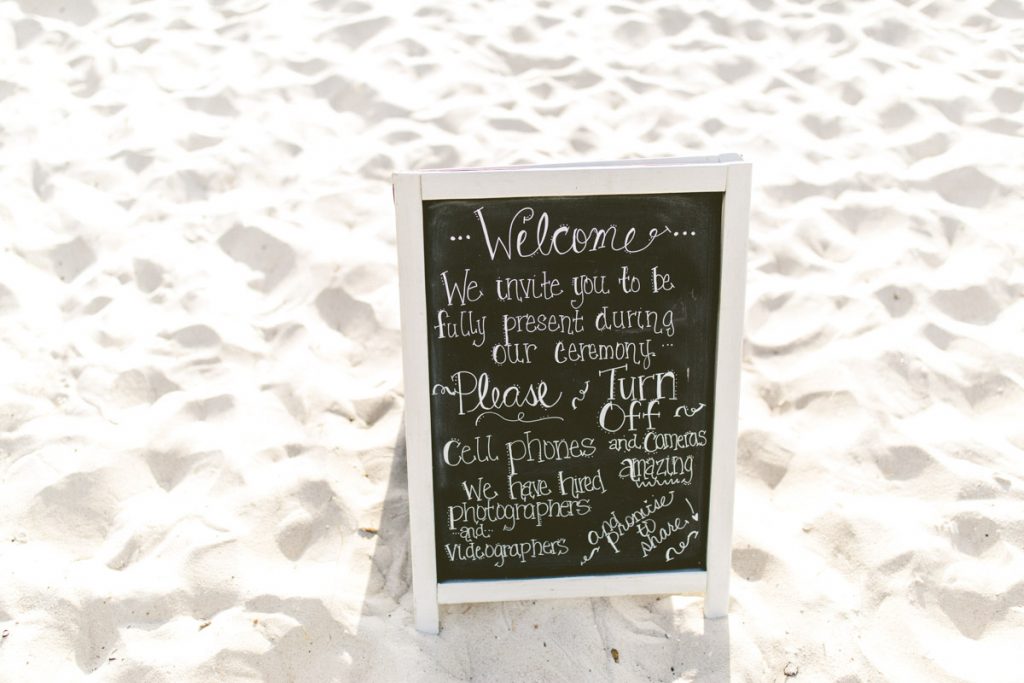 ... Welcome ...
We invite you to be
fully present during
our ceremony...
Please Turn
Off
Cell phones and Cameras
We have hired amazing
photographers
and
videographers
and
promise
to
share